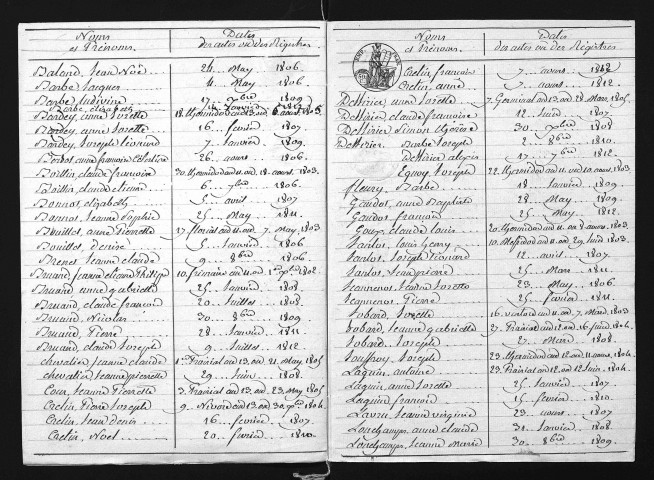 Noms et Prénoms.
Dates des actes ou des Registres
Baland, Jean Noël 24 May 1806.
Barbe Jacques 4 May 1806.
Barbe Ludivine 17 7bre 1809
Barbe, Elizabeth janvier 1812
Bardey, anne Josette 18. Thermidor an 11. ou 6. aout. 1803
Bardey, anne Josette 16 fevrier 1807
Bardey, Joseph Leonard 7 janvier 1809.
26 aout 1806.
Boillin, claude francoise 30. Thermidor an 11. ou 18. aout. 1803.
Boillin, claude etienne 6 7bre 1806.
Bonnot, Elizabeth 5 avril 1807
Bonnot, Jeanne Sophie 25 May 1811.
Bouillet, anne Pierrette 17 floréal an 11. ou 7. May 1803
Bouillet, Denise 5 janvier 1806
Brenet Jeanne claude 9 8bre 1806.
Bruand, jeanne etienne Philippe 10 frimaire an 11. ou 1er Xbre 1802.
Bruand anne gabrielle 25 janvier 1808.
Bruand, claude francois 20 Juillet 1808.
Bruand, Nicolas 30 8bre 1809
Bruand, Pierre 28 janvier 1811
Bruand, claude Joseph 9 Juillet 1812.
chevalier jeanne claude 1er Prairial an 13. ou 21. May. 1805
chevalier Jeanne pierrette 29 juin 1808.
Cour, Jeanne Pierrette 3. Prairial an 13. ou 23. May 1805
Cretin, Pierre Joseph 9. Nivose an 13. ou 30. Xbre 1804
Cretin, Jean Denis 16 fevrier 1807.
Cretin, Noel 20 fevrier 1810.
Noms et Prénoms.
Dates des actes ou des Registres
Cretin, francois 7 aout
Cretin, anne 7 aout 1812.
Dethérier, anne Josette 7. Germinal an 13. ou 28. Mars. 1805
Dethérier, claude francoise 12 Juin 1807
Dethérier, Simon 30 Xbre 1808
Dethérier, Barbe Joseph 2 8bre 1810.
Dethérier alexis 17 7bre 1812.
Joseph 22. Thermidor an 11. ou 10. aout. 1803.
fleury, Barbe 18 janvier 1809
Gaudot, anne Baptiste 28 May 1809
Gaudot francois 25 May 1812
Goux, claude louis 20. Thermidor an 11. ou 8. aout 1803
Louis 10. Messidor an 11. ou 29. Juin 1803.
Joseph Leonard 12 avril 1807.
25 Mars 1811
Jeannenot, Jeanne Josette 23 May 1806
Jeannenot, Pierre 25 fevrier 1811.
Jobard, Josette 16 ventose an 11. ou 7. Mars. 1803
Jobard, Jeanne gabrielle 27. Prairial an 12. ou 16. Juin 1804
Jobard Joseph 27 Mars 1808
Jouffroy, Joseph 23. Thermidor an 12. ou 11. aout. 1804
Laguin, antoine 23. Prairial an 12. ou 12. Juin 1804.
Laguin, anne Josette 25 janvier 1807.
Laguin, francois 15 fevrier 1810.
Jeanne virginie 23 aout 1807
Lonchampt, anne claude 31 janvier 1808
Lonchampt, Jeanne Marie 30 8bre 1809.